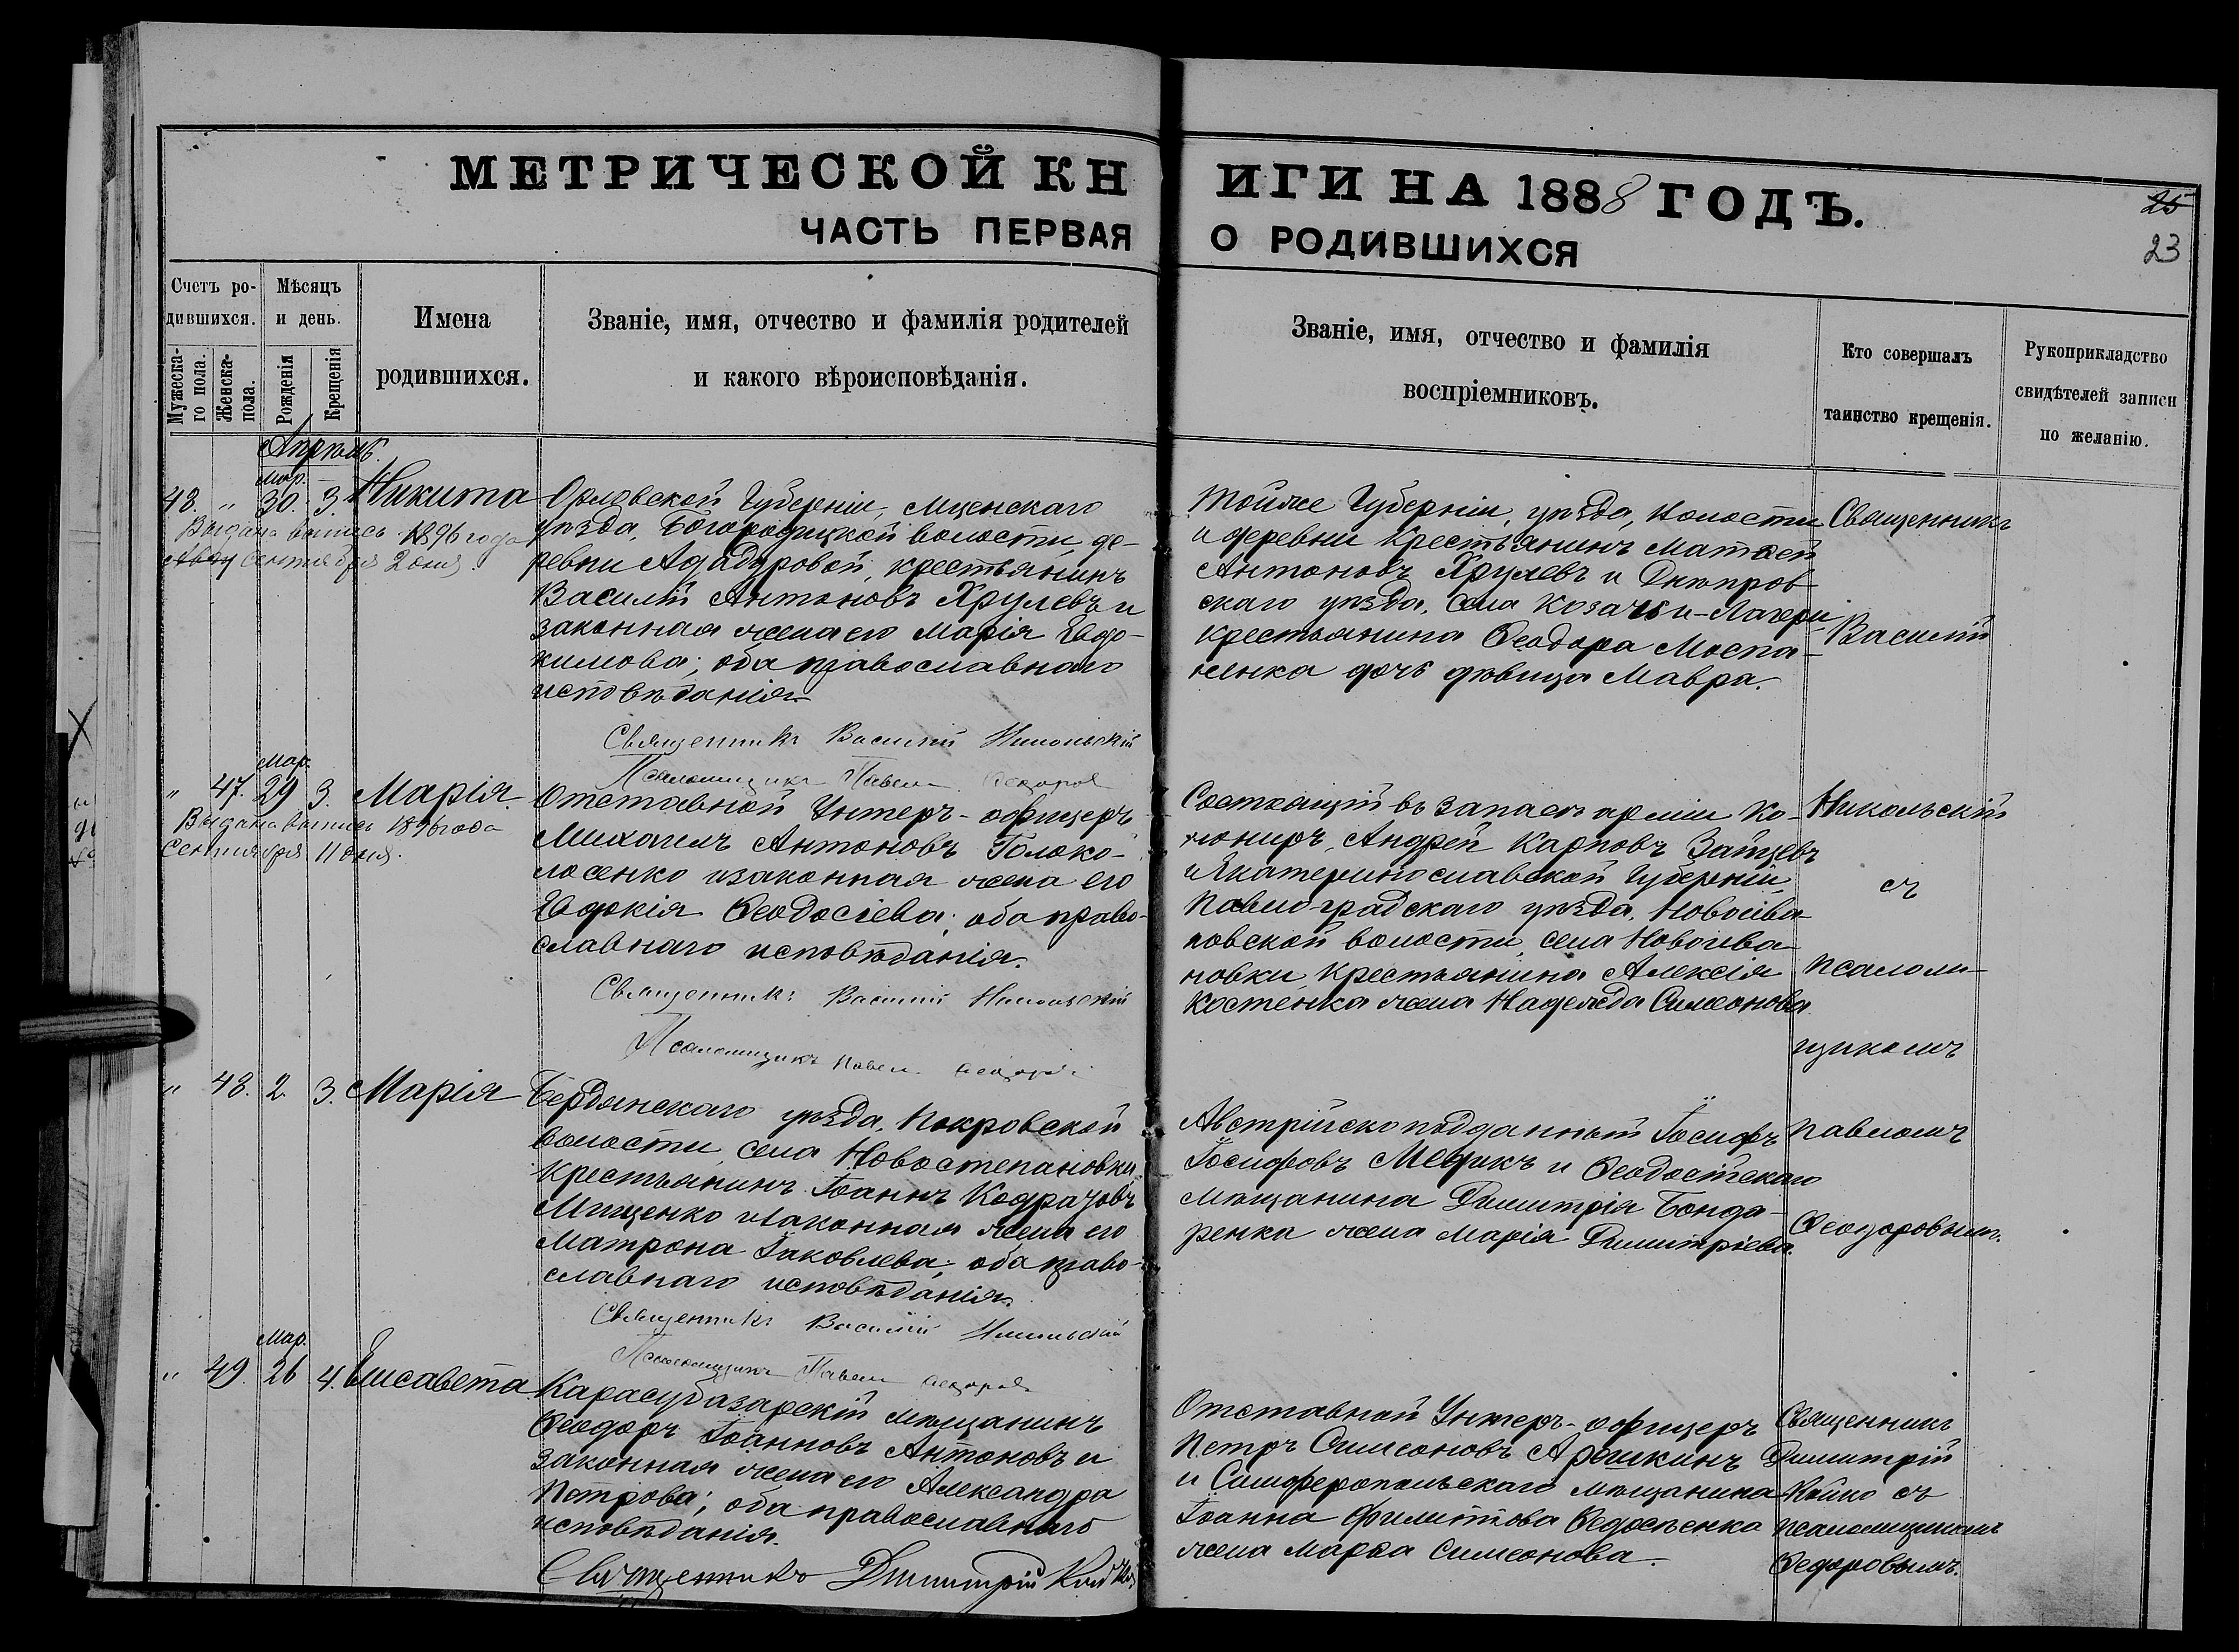 МЕТРИЧЕСКОЙ КНИГИ НА 1888 ГОДЪ.
ЧАСТЬ ПЕРВАЯ О РОДИВШИХСЯ
25
23
Счетъ родившихся.
Мужескаго пола.
Женска- пола.
Мѣсяцъ и день.
Рожденія
Крещенія
Имена родившихся.
Званіе, имя, отчество и фамилія родителей
и какого вѣроисповѣданія.
Званіе, имя, отчество и фамилія
воспріемниковъ.
Кто совершалъ
таинство крещенія.
Рукоприкладство
свидѣтелей записи
по желанію.
Апрѣль.
Мар.
48. " 30. 3. Никита
Выдана выпись 1896 года
Сентября 2 дня.
Орловской Губерніи, Мценскаго
уѣзда, Богородицкой волости, де-
ревни Ададуровой, крестьянинъ
Василій Антоновъ Хрулевъ и
законная жена его Марія Евдо-
кимова; оба православнаго
исповѣданія.
Священникъ Василій Никольскій
Псаломщикъ Павелъ Федоровъ
Тойже Губерніи, уѣзда, волости
и деревни крестьянинъ Матѳей
Антоновъ Хрулевъ и Днѣпров-
скаго уѣзда, села Козачьи-Лагери
крестьянина Ѳеодора Моспа-
ненка дочь дѣвица Мавра.
Священникъ
Василій
Мар.
" 47. 29 3. Марія.
Выдана выпись 1896 года
Сентября 11 дня.
Отставной Унтеръ-офицеръ
Михаилъ Антоновъ Голоко-
лосенко и законная жена его
Евдокія Ѳеодосіева; оба право-
славнаго исповѣданія.
Священникъ Василій Никольскій
Псаломщикъ Павелъ Федоровъ
Состоящій въ запасѣ арміи Ка-
нониръ, Андрей Карповъ Зайцевъ
и Екатеринославской Губерніи,
Павлоградскаго уѣзда, Новоива-
новской волости, села Новоива-
новки, крестьянина Алексія
Костенка жена Надежда Симеонова
Никольскій
съ
псалом-
щикомъ
" 48. 2. 3. Марія
Бердянскаго уѣзда, Покровской
волости, села Новостепановки
крестьянинъ Іоаннъ Кодратовъ
Мищенко и законная жена его
Матрона Іаковлева; оба право-
славнаго исповѣданія.
Священникъ Василій Никольскій
Псаломщикъ Павелъ Федоровъ
Австрійско подданный Іосифъ
Іосифовъ Медикъ и Ѳеодосійскаго
мѣщанина Димитрія Бонда-
ренка жена Марія Димитріева.
Павломъ
Ѳеодоровымъ.
Мар.
" 49. 26 4. Елисавета
Карасубазарскій мѣщанинъ
Ѳеодоръ Іоанновъ Антоновъ и
законная жена его Александра
Петрова; оба православнаго
исповѣданія.
Священникъ Димитрій Койко
Отставной Унтеръ-офицеръ
Петръ Симеоновъ Арашкинъ
и Симферопольскаго мѣщанина
Іоанна Филиппова Ѳедосѣенка
жена Марѳа Симеонова.
Священникъ
Димитрій
Койко съ
псаломщикомъ
Ѳедоровымъ.